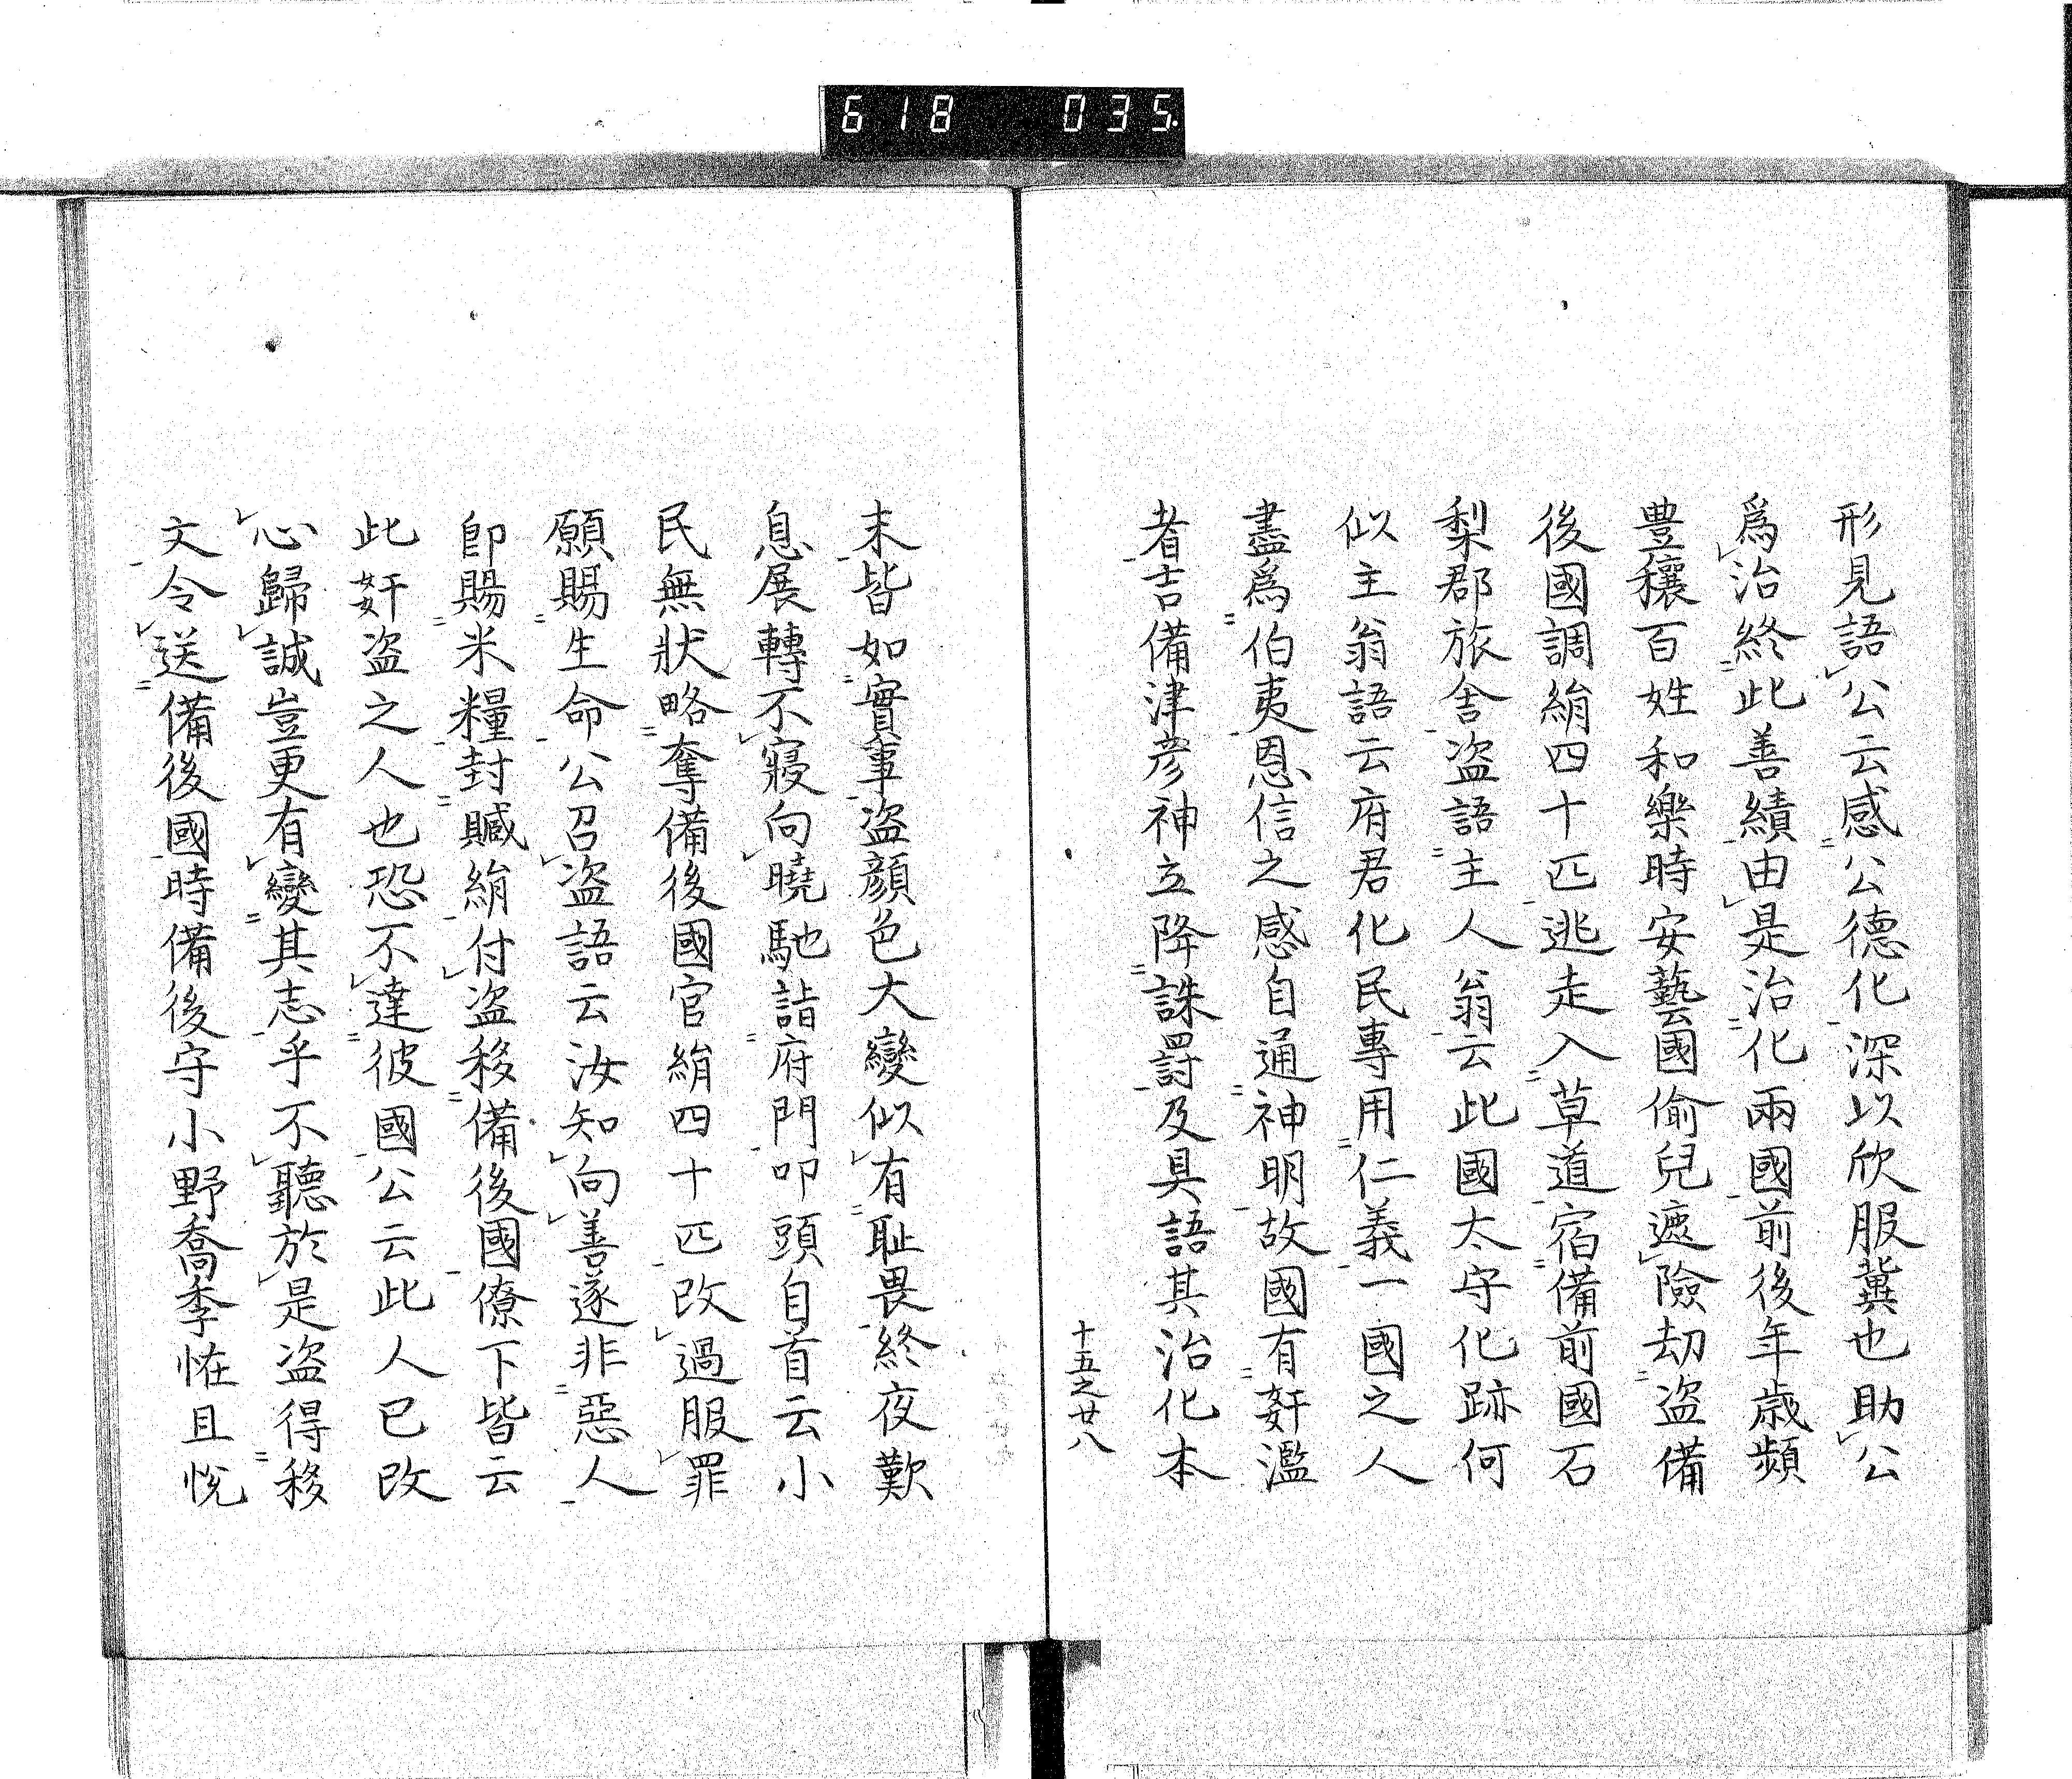 618 035
形見語公云感公德化深以欣服冀也助公
爲治終此善績由是治化兩國前後年歳頻
豊穰百姓和樂時安藝國偷兒遮險劫盗備
後國調絹四十匹逃走入草道宿備前國石
梨郡旅舎盗語主人翁云此國太守化跡何
似主翁語云府君化民專用仁義一國之人
盡爲伯夷恩信之感自通神明故國有姧濫
者吉備津彦神立降誅罸及具語其治化本
十五之廿八
末皆如實事盗顔色大變似有耻畏終夜歎
息展轉不寢向曉馳詣府門叩頭自首云小
民無狀略奪備後國官絹四十匹改過服罪
願賜生命公召盗語云汝知向善遂非惡人
卽賜米糧封贓絹付盗移備後國僚下皆云
此姧盗之人也恐不達彼國公云此人已改
心歸誠豈更有變其志乎不聽於是盗得移
文令送備後國時備後守小野喬季恠且悅